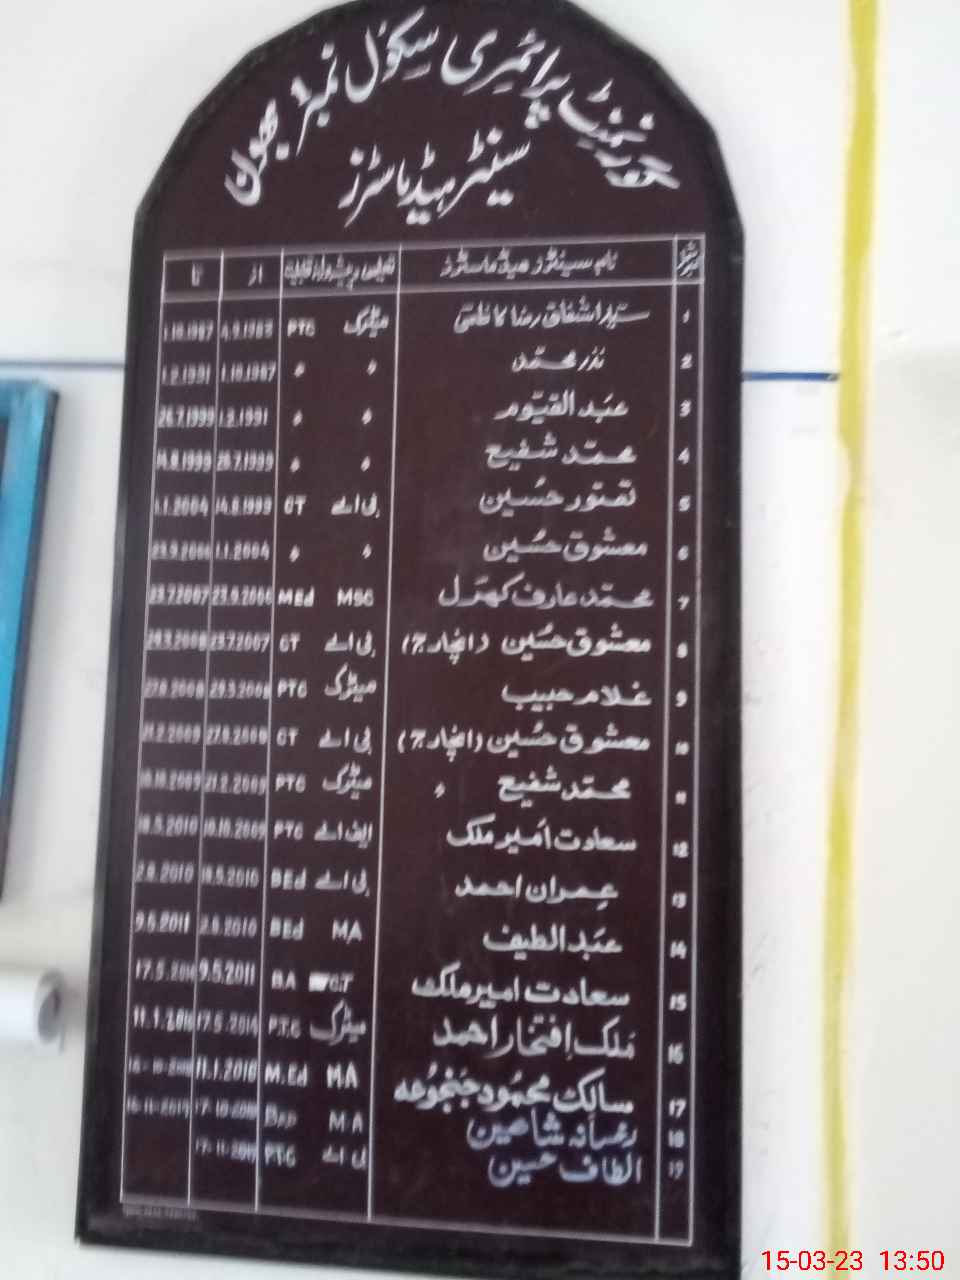 گورنمنٹ پرائمری سکول نمبر 1 بھون
سینٹر ہیڈماسٹرز
نمبر شمار نام سینٹر ہیڈ ماسٹرز تعلیمی و پیشہ ورانہ قابلیت از تا
1 سید اشفاق رضا کاظمی میٹرک PTC 1.10.1987
2 نذر محمد " " 1.10.1987 1.2.1991
3 عبد القیوم " " 1.2.1991 26.7.1999
4 محمد شفیع " " 14.8.1999
5 تصور حسین بی اے CT 14.8.1999 1.1.2004
6 معشوق حسین " " 1.1.2004 23.9.2006
7 محمد عارف کھرل MSC MEd 23.9.2006 23.7.2007
8 معشوق حسین (انچارج) بی اے CT 23.7.2007
9 غلام حبیب میٹرک PTC 27.9.2008
10 معشوق حسین (انچارج) بی اے CT 27.9.2008 21.2.2009
11 محمد شفیع " میٹرک PTC 21.2.2009 10.10.2009
12 سعادت امیر ملک ایف اے PTC 10.10.2009 18.5.2010
13 عمران احمد بی اے BEd 18.5.2010 2.8.2010
14 عبد الطیف MA BEd 2.8.2010 9.5.2011
15 سعادت امیر ملک CT BA 9.5.2011
16 ملک افتخار احمد میٹرک P.T.C 11.1.2016
17 سالک محمود جنجوعہ MA M.Ed 11.1.2016
18 رخسانہ شاہین MA
19 الطاف حسین بی اے P.T.C
15-03-23 13:50